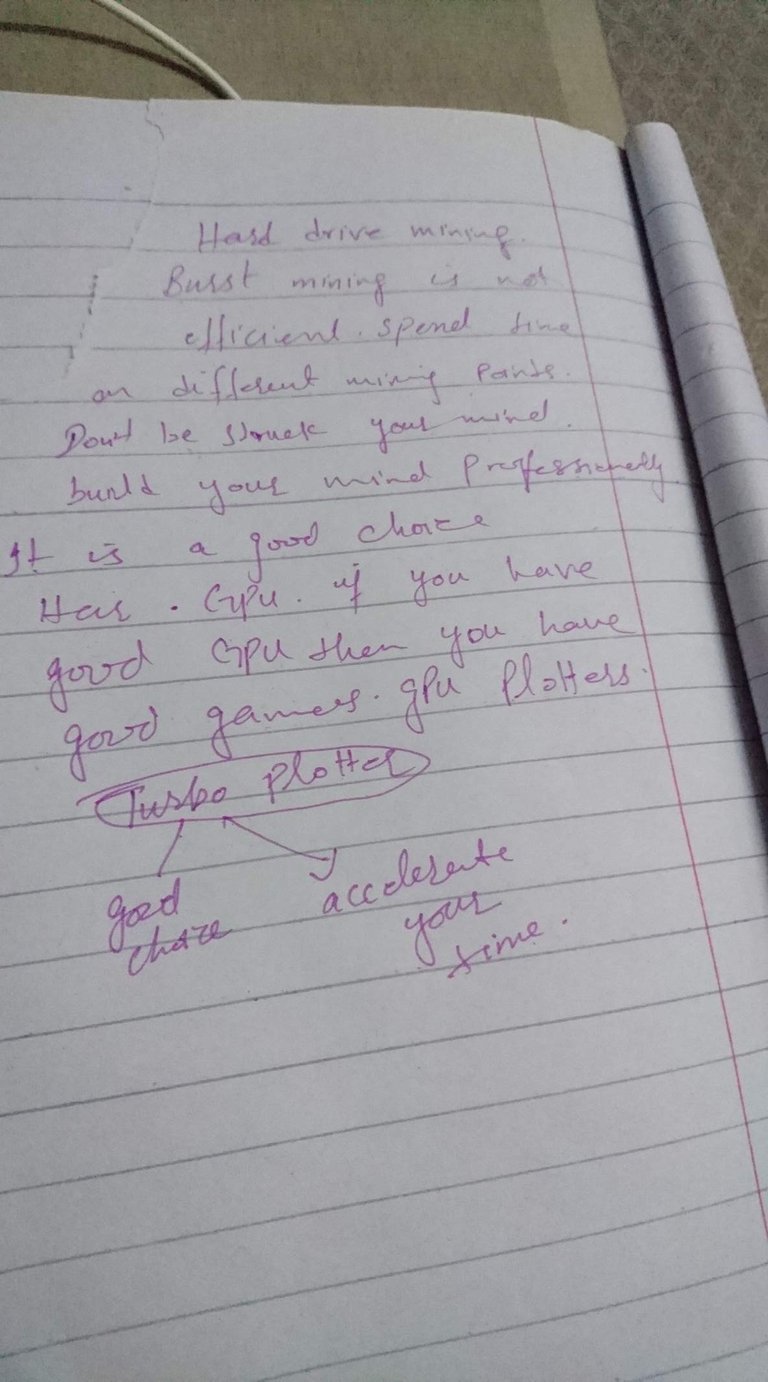 Hard drive mining.
Burst mining is not
efficient. spend time
on different mining Points.
Don't be struck your mind.
build your mind Professionally
It is a good choice
. GPU. if you have
good GPU then you have
good gamers. gPu Plotters.
Turbo Plotter
good accelerate
choice your
time.